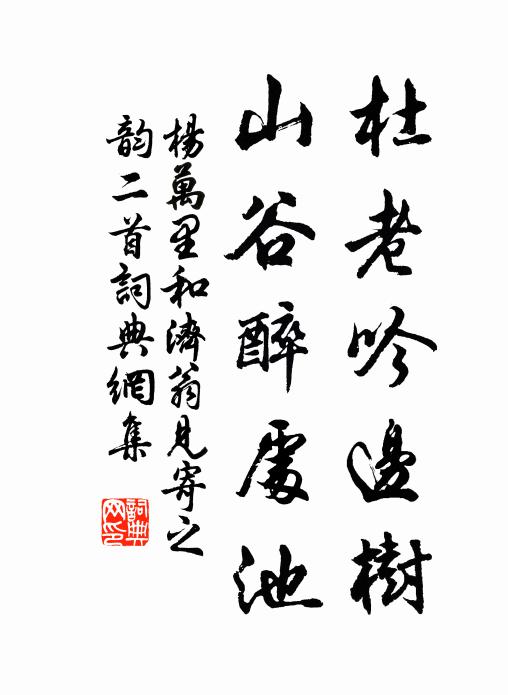 杜老吟邊樹
山谷醉處池
楊萬里和濟翁見寄之
韵二首詞典網集
詞典
网印